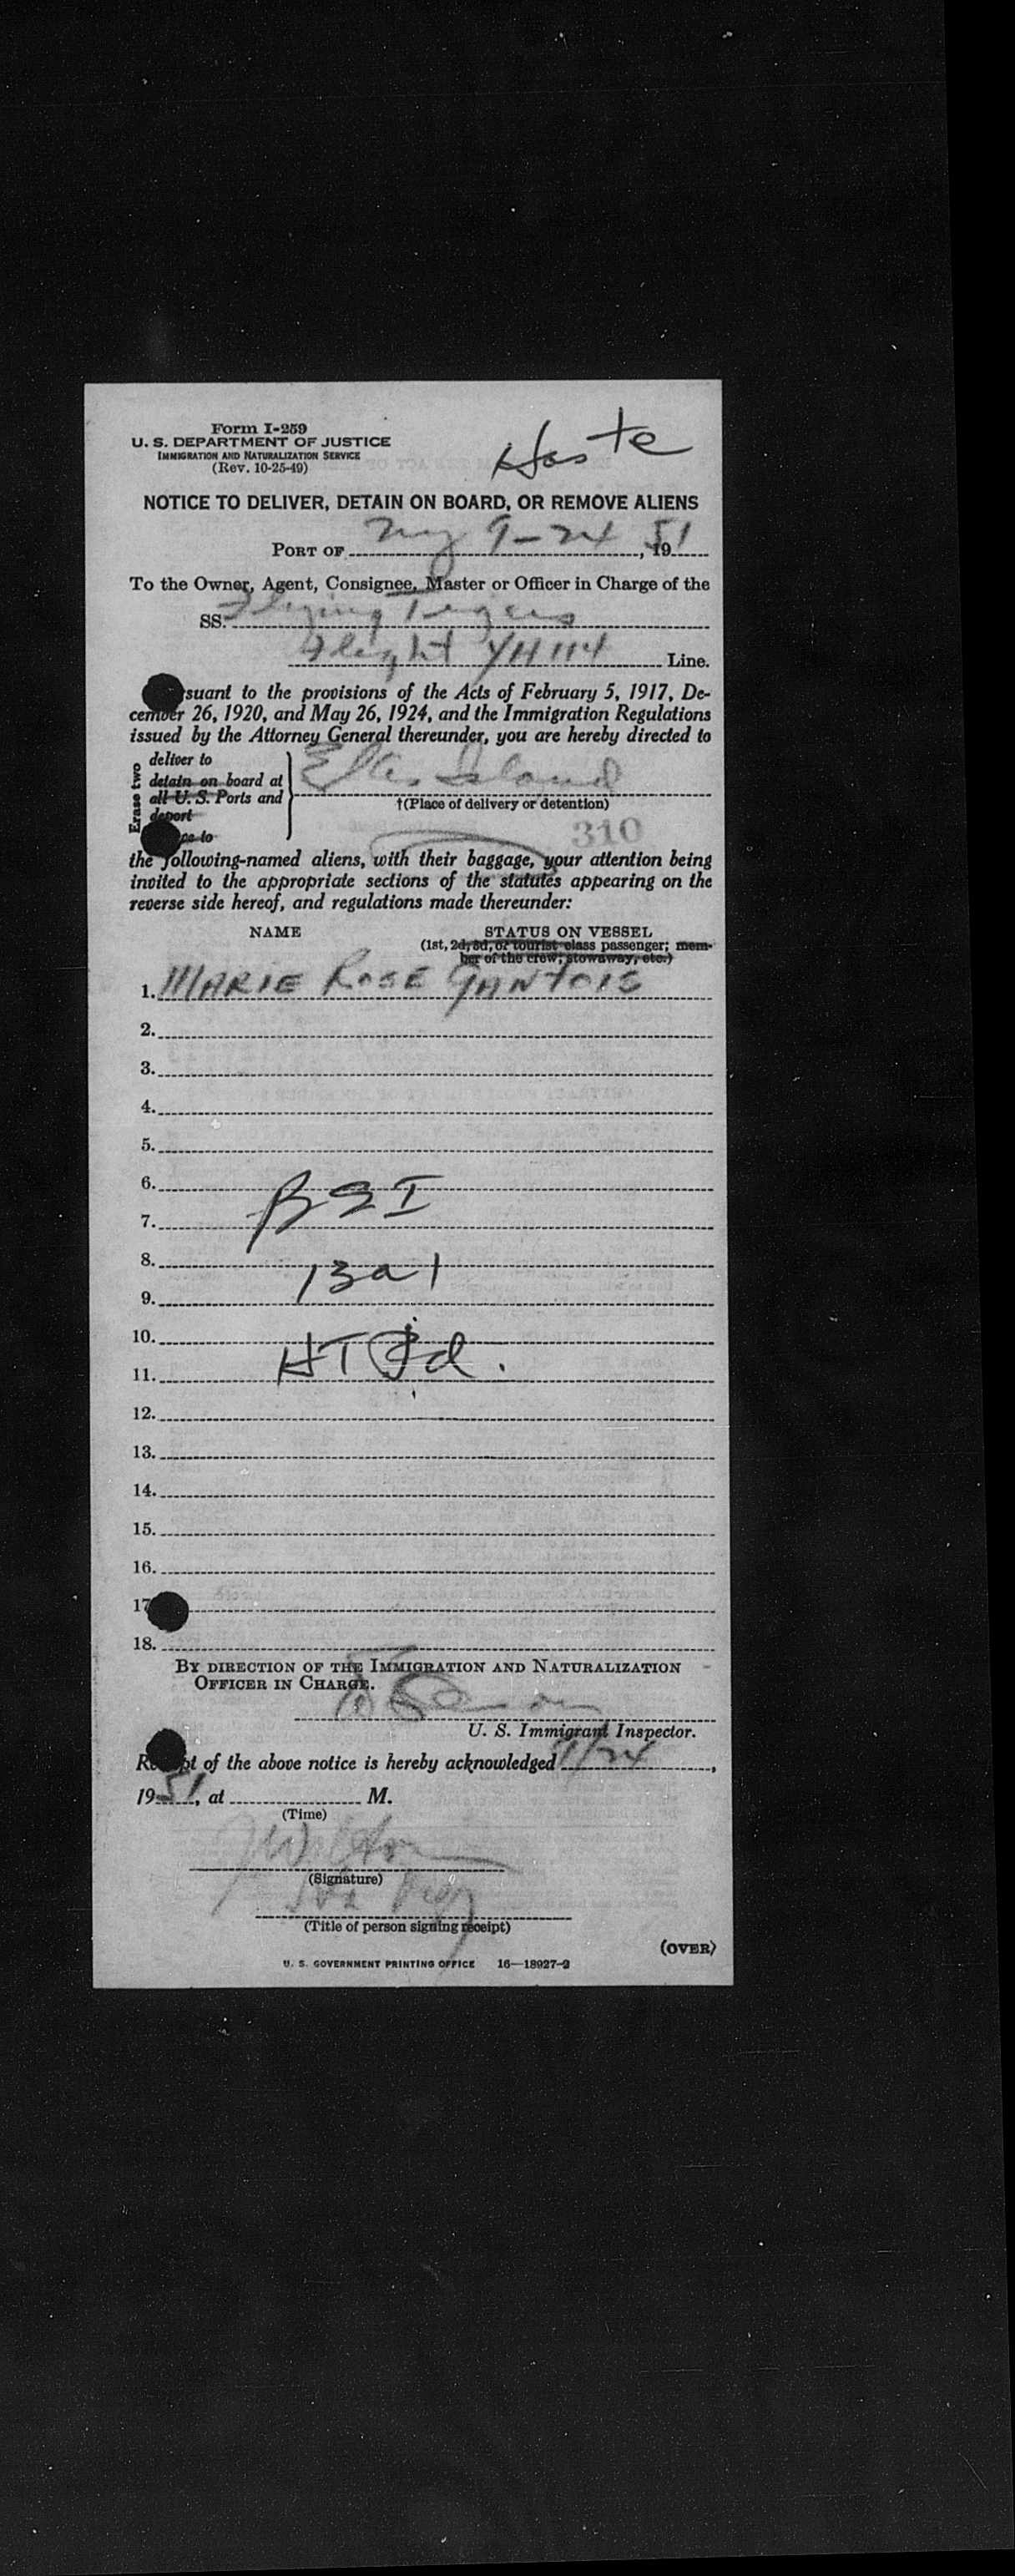 Form I-259
U. S. DEPARTMENT OF JUSTICE
IMMIGRATION AND NATURALIZATION SERVICE
(Rev. 10-25-49)
Haste
NOTICE TO DELIVER, DETAIN ON BOARD, OR REMOVE ALIENS
PORT OF NY 9-24, 1951
To the Owner, Agent, Consignee, Master or Officer in Charge of the
SS. Flying Tigers
Flight YH 114 Line.
suant to the provisions of the Acts of February 5, 1917, De-
cember 26, 1920, and May 26, 1924, and the Immigration Regulations
issued by the Attorney General thereunder, you are hereby directed to
Erase two
deliver to
detain on board at
all U. S. Ports and
deport
to
Ellis Island
†(Place of delivery or detention)
310
the following-named aliens, with their baggage, your attention being
invited to the appropriate sections of the statutes appearing on the
reverse side hereof, and regulations made thereunder:
NAME STATUS ON VESSEL
(1st, 2d, 3d, or tourist class passenger; mem-
ber of the crew; stowaway, etc.)
1. MARIE ROSE GANTOIS
2.
3.
4.
5.
6.
BSI
7.
8.
13a1
9.
10.
11.
12.
13.
14.
15.
16.
17
18.
BY DIRECTION OF THE IMMIGRATION AND NATURALIZATION
OFFICER IN CHARGE.
U. S. Immigrant Inspector.
Receipt of the above notice is hereby acknowledged 9/24,
1951, at M.
(Time)
(Signature)
(Title of person signing receipt)
(OVER)
U. S. GOVERNMENT PRINTING OFFICE 16—18927-2